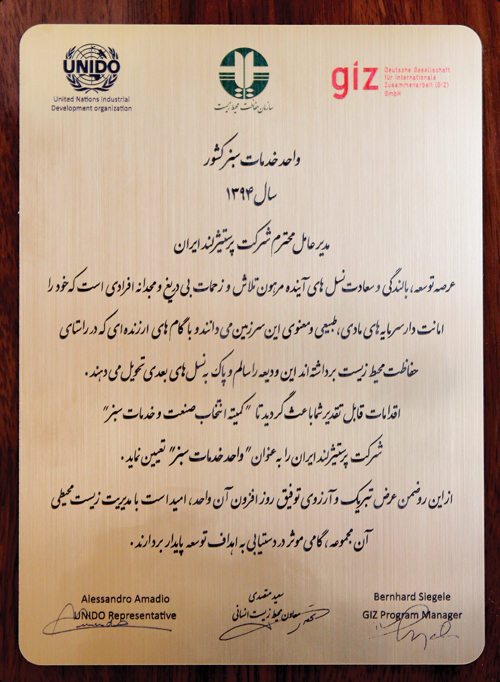 UNIDO
United Nations Industrial
Development organization
سازمان حفاظت محیط زیست
giz
Deutsche Gesellschaft
für Internationale
Zusammenarbeit (GIZ)
GmbH
واحد خدمات سبز کشور
سال ۱۳۹۴
مدیر عامل محترم شرکت پرستیژلند ایران
عرصه توسعه، بالندگی و سعادت نسل های آینده مرهون تلاش و زحمات بی دریغ و مجدانه افرادی است که خود را
امانت دار سرمایه های مادی، طبیعی و معنوی این سرزمین می دانند و با گام های ارزنده ای که در راستای
حفاظت محیط زیست برداشته اند این ودیعه را سالم و پاک به نسل های بعدی تحویل می دهند.
اقدامات قابل تقدیر شما باعث گردید تا "کمیته انتخاب صنعت و خدمات سبز"
شرکت پرستیژلند ایران را به عنوان "واحد خدمات سبز" تعیین نماید.
از این رو ضمن عرض تبریک و آرزوی توفیق روز افزون آن واحد، امید است با مدیریت زیست محیطی
آن مجموعه، گامی موثر در دستیابی به اهداف توسعه پایدار بردارند.
Alessandro Amadio
UNIDO Representative
سعید متصدی
معاون محیط زیست انسانی
Bernhard Siegele
GIZ Program Manager